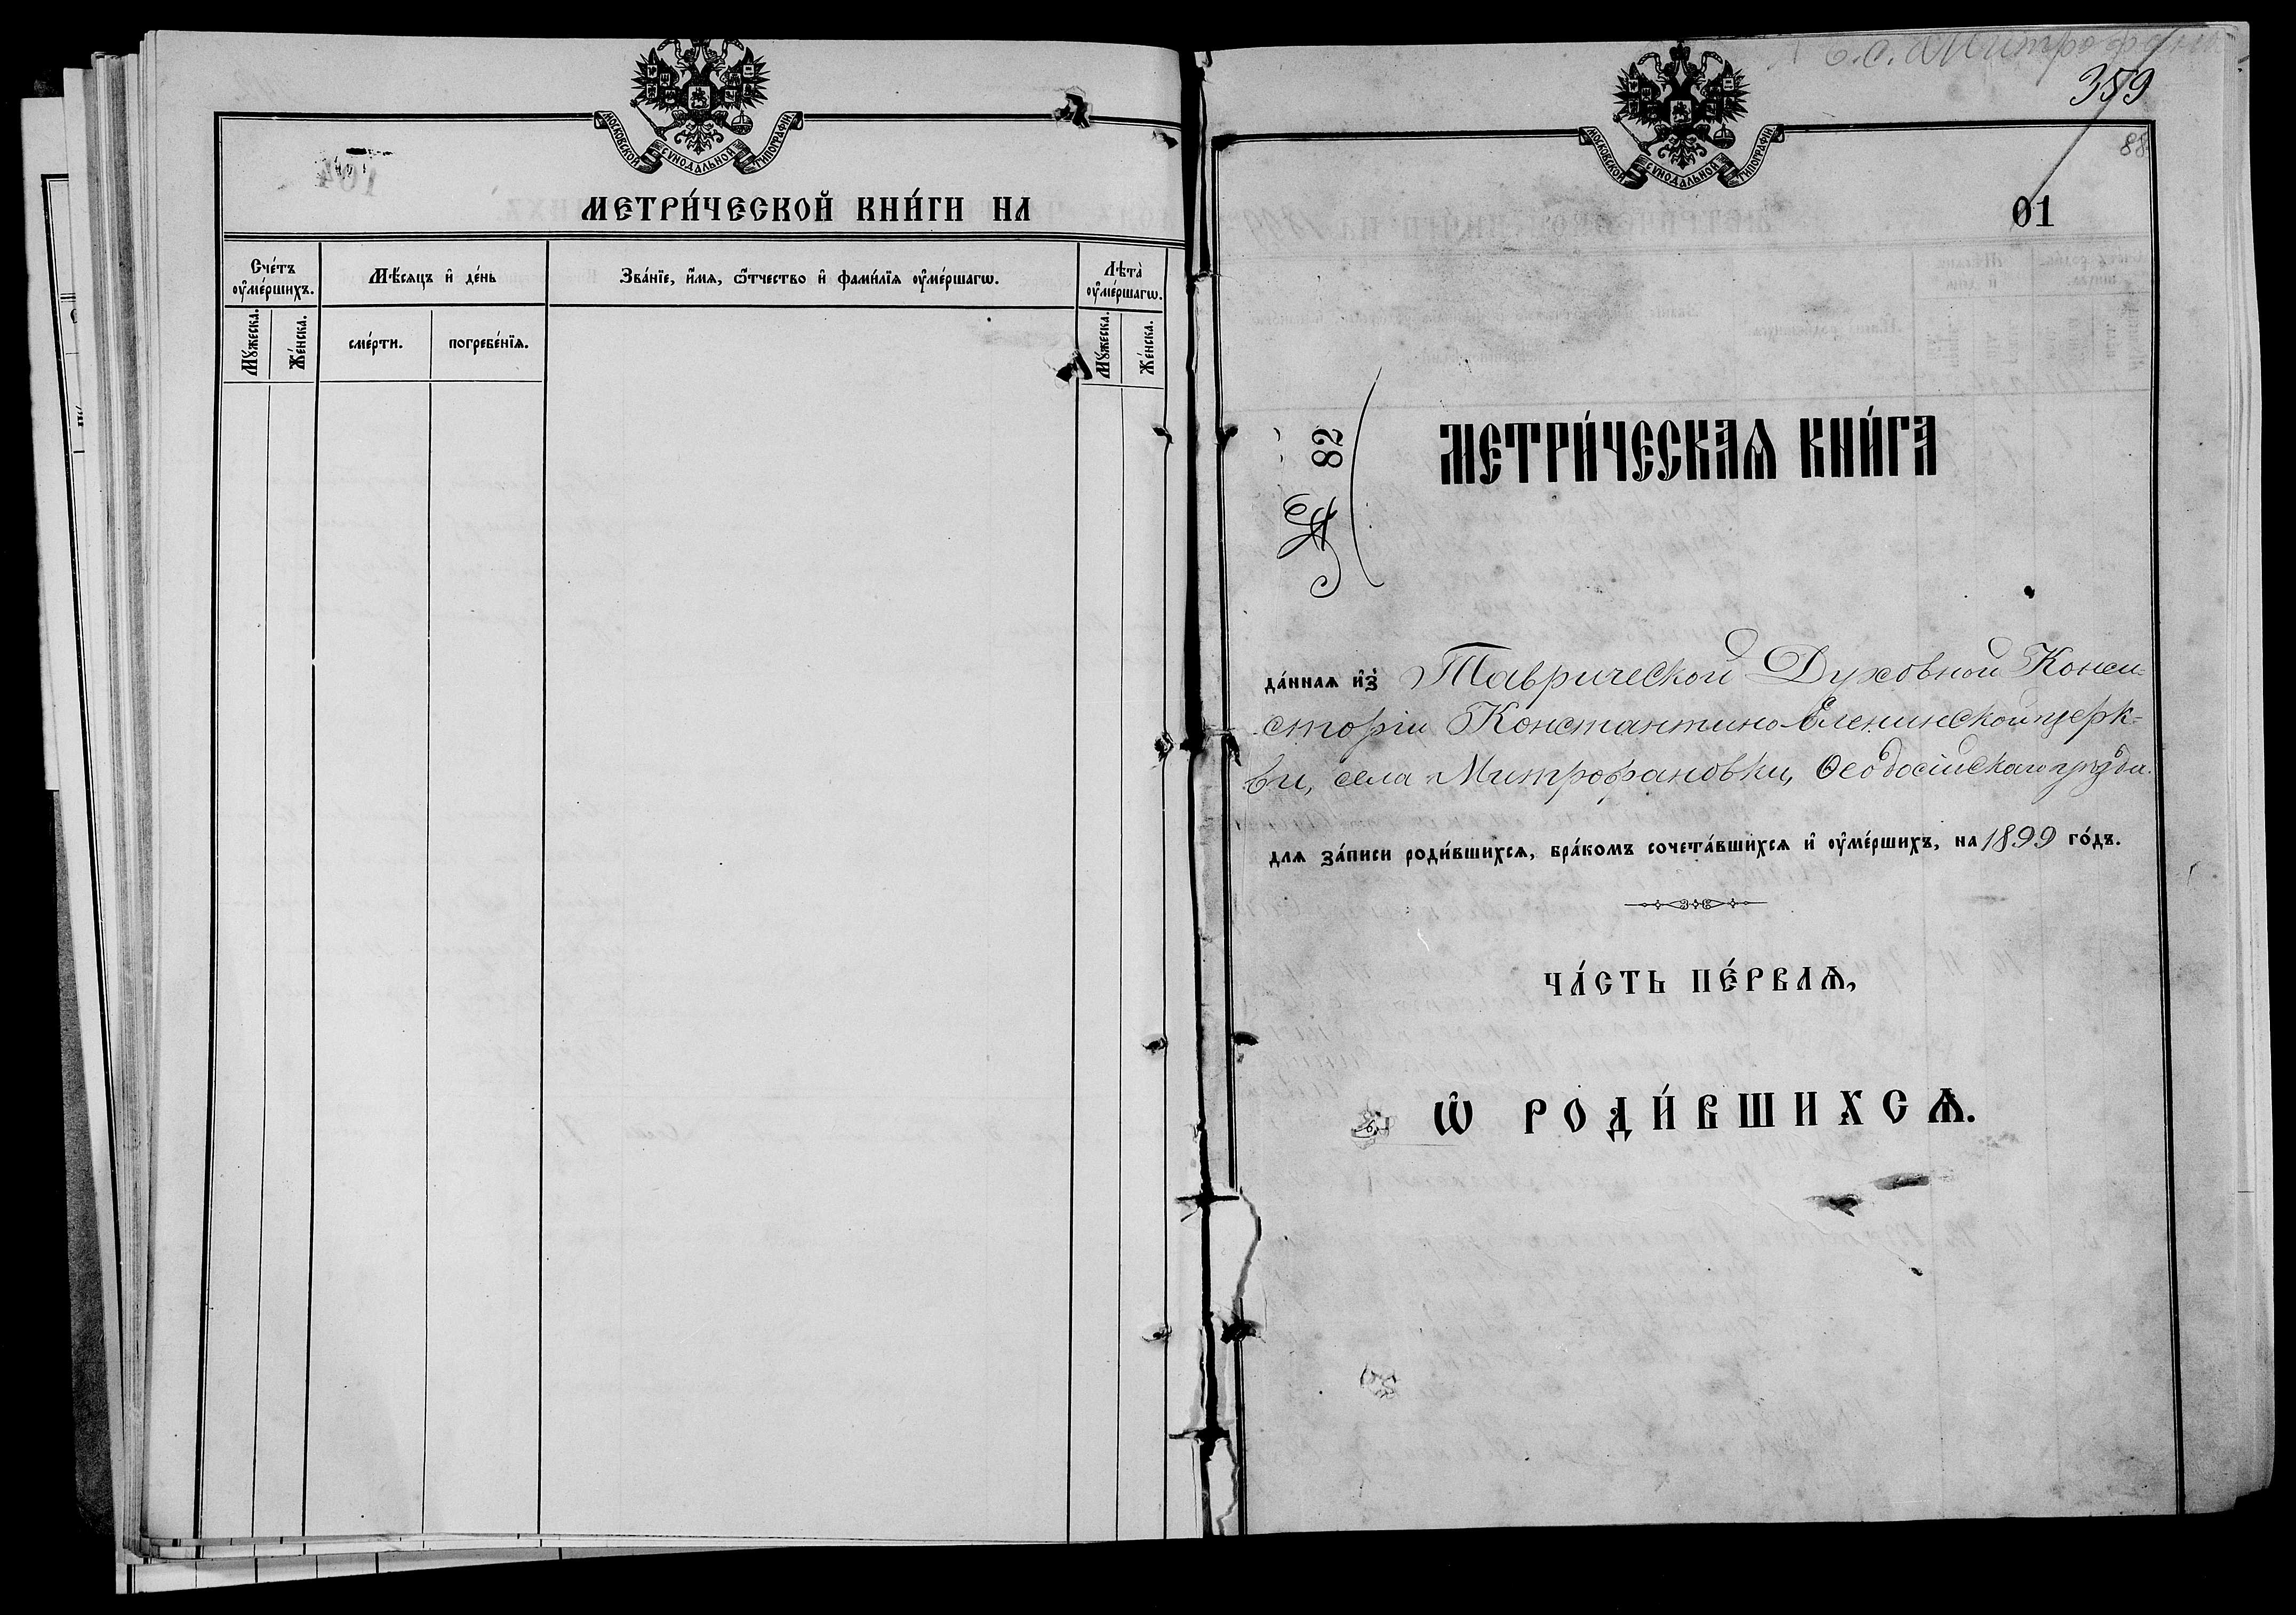 МОСКОВСКОЙ СѴНОДАЛЬНОЙ ТИПОГРАФІИ
МЕТРИ́ЧЕСКОЙ КНИ́ГИ НА
Сче́тъ ᲂу҆ме́ршихъ.
Мѣ́сяцъ и҆ де́нь
Зва́нїе, и҆́мѧ, ѻ҆́тчество и҆ фами́лїѧ ᲂу҆ме́ршагѡ.
Лѣта̀ ᲂу҆ме́ршагѡ.
Мꙋ́жеска.
Же́нска.
сме́рти.
погребе́нїѧ.
Мꙋ́жеска.
Же́нска.
с. Митрофан
359
МОСКОВСКОЙ СѴНОДАЛЬНОЙ ТИПОГРАФІИ
88
01
№ 82
МЕТРИ́ЧЕСКАѦ КНИ́ГА
да́ннаѧ и҆з̾ Таврической Духовной Конси-
сторіи Константино-Еленинской церк-
ви, села Митрофановки, Ѳеодосійскаго уѣзда
длѧ за́писи роди́вшихсѧ, бра́комъ сочета́вшихсѧ и҆ ᲂу҆ме́ршихъ, на 1899 го́дъ.
ЧА́СТЬ ПЕ́РВАѦ,
Ѡ҆ РОДИ́ВШИХСѦ.